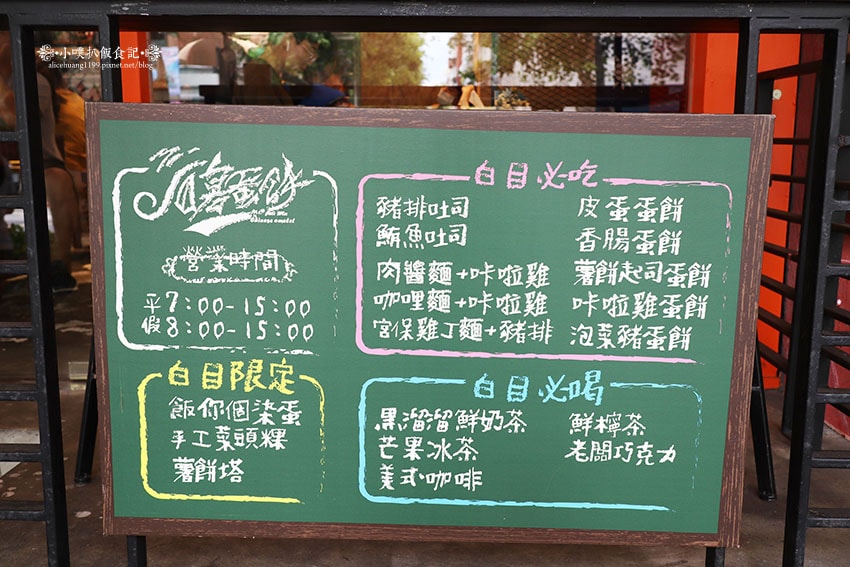 小噗扒飯食記
alicehuang1199.pixnet.net/blog
營業時間
平7:00-15:00
假8:00-15:00
白目限定
飯你個染蛋
手工菜頭粿
薯餅塔
白目必吃
豬排吐司
鮪魚吐司
肉醬麵+咔啦雞
咖哩麵+咔啦雞
宮保雞丁麵+豬排
皮蛋蛋餅
香腸蛋餅
薯餅起司蛋餅
咔啦雞蛋餅
泡菜豬蛋餅
白目必喝
黑溜溜鮮奶茶
芒果冰茶
美式咖啡
鮮檸茶
老闆巧克力